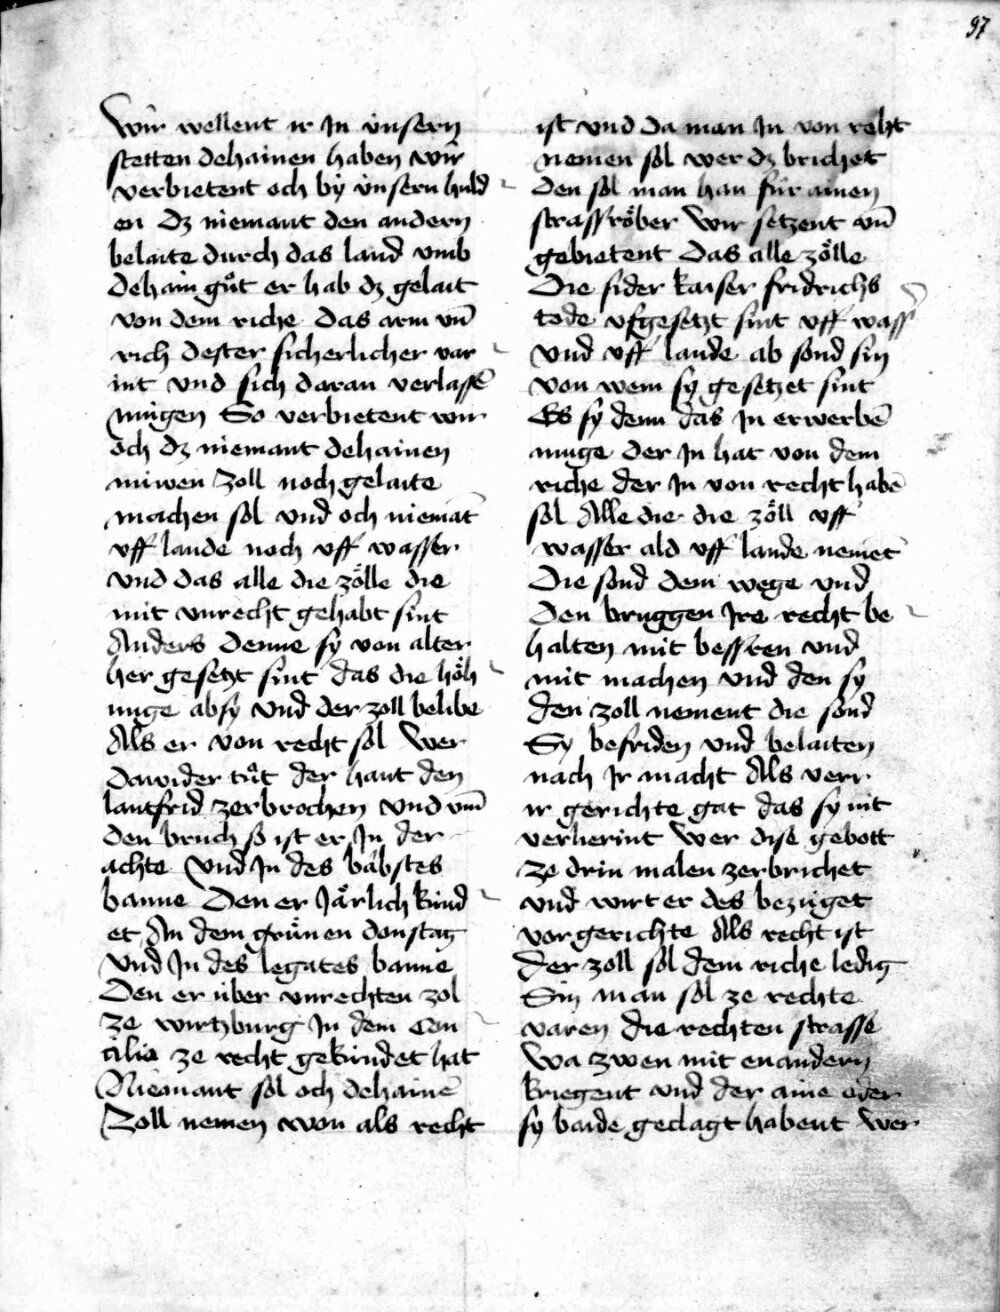 97
Wir wellent ir In v̇nsern
stetten dehainen haben wir
verbietent och by v̇nsern huld
en dz niemant den andern
belaite durch das land vmb
dehain gůt er hab dz gelait
von dem riche das arm vn̄
rich dester sicherlicher var
int vnd sich daran verlassē
mügen So verbietent wir
och dz niemant dehainen
nüwen zoll noch gelaite
machen sol vnd och niemāt
vff lande noch vff wasser
vnd das alle die zölle die
mit vnrecht gehabt sint
Anders denne sy von alter
her gesetzt sint das die höh
unge absy vnd der zoll belibe
Als er von recht sol Wer
dawider tůt der haut den
lantfrid zerbrochen vnd vm̄
den bruch so ist er In der
achte Vnd In des bäbstes
banne Den er Järlich künd
et An dem grünen donstag
vnd In des legates banne
Den er über vnrechten zol
ze wirtzburg In dem Con
cilio ze recht gekündet hat
Niemant sol och dehainē
Zoll nemen won als recht
ist vnd da man In von reht
nemen sol wer dz brichet
den sol man han für ainen
strassröber Wir setzent vn̄
gebietent Das alle zölle
Die sider kaiser fridrichs
tode vfgesetzt sint vff wass
vnd vff lande ab sond sin
von wem sy gesetzet sint
Es sy denn das In erwerbē
muge der In hat von dem
riche der In von recht habē
sol Alle die die zöll vff
wasser ald vff lande nemēt
Die sond dem wege vnd
Den bruggen Ire recht be
halten mit bessren vnd
mit machen vnd den sy
den zoll nement die sond
Sy befriden vnd belaiten
nach Ir macht Als verr
ir gerichte gat das sy nit
verlierint Wer dise gebott
ze drin malen zerbrichet
vnd wirt er des bezüget
vor gerichte Als recht ist
der zoll sol dem riche ledig
Sin man sol ze rechte
varen die rechten strasse
Wa zwen mit enandern
kriegent vnd der aine oder
sy baide geclagt habent Wer